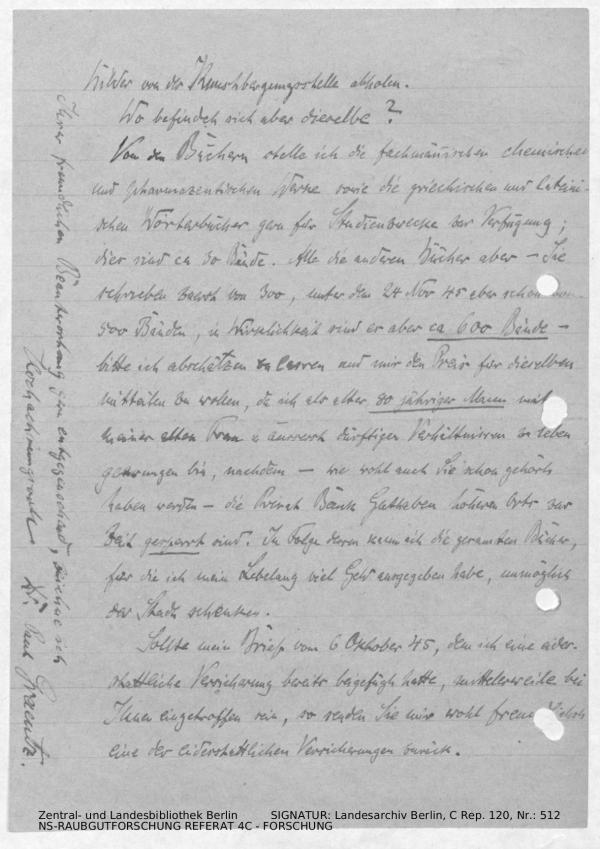 Bilder von der Kunstbergungsstelle abholen.
Wo befindet sich aber dieselbe?
Von den Büchern stelle ich die fachmännischen chemischen
und pharmazeutischen Werke sowie die griechischen und lateini-
schen Wörterbücher gern für Studienzwecke zur Verfügung;
dies sind ca 30 Bände. Alle die anderen Bücher aber – Sie
schrieben zuerst von 300, unter dem 24 Nov 45 aber schon von
500 Bänden, in Wirklichkeit sind es aber ca 600 Bände –
bitte ich abschätzen zu lassen und mir den Preis für dieselben
mitteilen zu wollen, da ich als alter 80 jähriger Mann mit
meiner alten Frau in äusserst dürftigen Verhältnissen zu leben
gezwungen bin, nachdem – wie wohl auch Sie schon gehört
haben werden – die Privat Bank Guthaben höheren Orts zur
Zeit gesperrt sind. In Folge deren kann ich die gesamten Bücher,
für die ich mein Lebelang viel Geld ausgegeben habe, unmöglich
der Stadt schenken.
Sollte mein Brief vom 6 Oktober 45, dem ich eine eides-
stattliche Versicherung bereits beigefügt hatte, mittlerweile bei
Ihnen eingetroffen sein, so senden Sie mir wohl freundlichst
eine der eidesstattlichen Versicherungen zurück.
Ihrer freundlichen Beantwortung gern entgegensehend, zeichne ich
Hochachtungsvoll Dr. Paul Graentz.
Zentral- und Landesbibliothek Berlin SIGNATUR: Landesarchiv Berlin, C Rep. 120, Nr.: 512
NS-RAUBGUTFORSCHUNG REFERAT 4C - FORSCHUNG